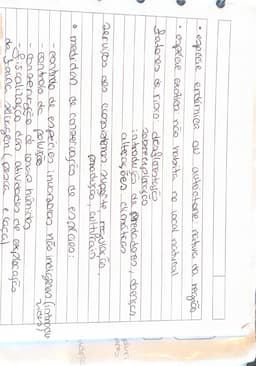 • espécie endémica ou autóctone nativa da região
• espécie exótica não habita no local natural
fatores de risco: desflorestação
sobreexploração
introdução de predadores, doenças
alterações climáticas
serviços dos ecossistemas: suporte, regulação
produção, culturais
• medidas de conservação de espécies:
- controlo de espécies invasoras não indígenas
- controlo da poluição
- conservação de zonas húmidas
- fiscalização das atividades de exploração
da fauna selvagem (pesca e caça)